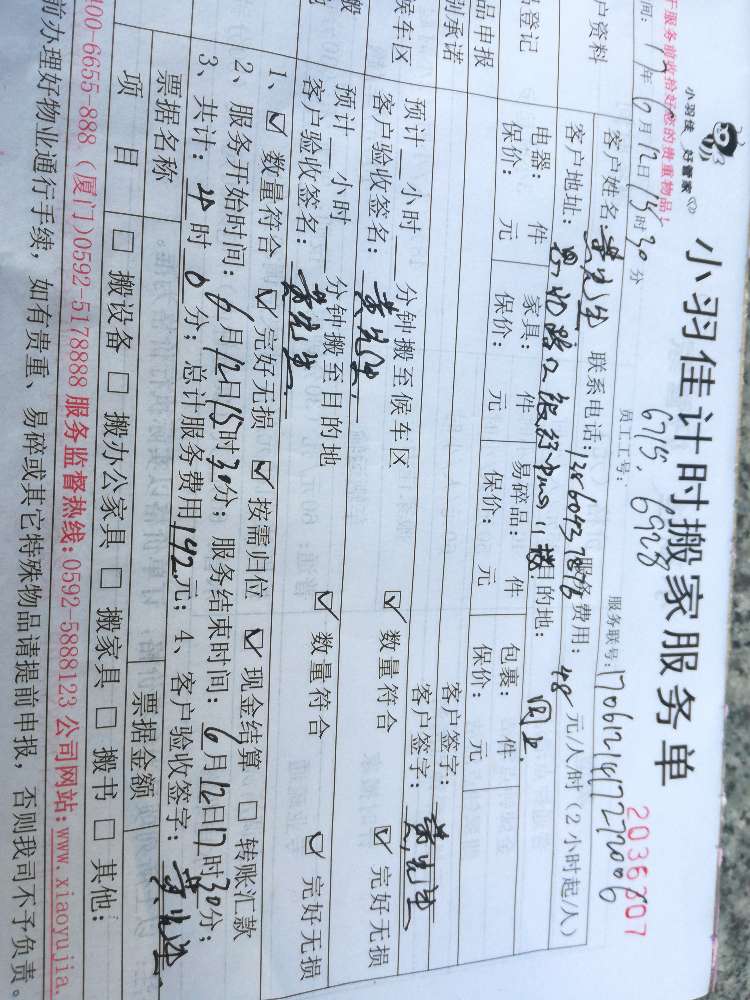 小羽佳 好管家
小羽佳计时搬家服务单
2036307
于服务前收拾好您的贵重物品
员工工号: 6715. 6928
服务联号:
间: 17年6月12日15时30分
户资料
客户姓名: 黄先生 联系电话: 服务费用: 48 元/人/时 (2小时起/人)
客户地址: 目的地: 同上
品登记
电器: 件 家具: 件 易碎品: 件 包裹: 件
保价: 元 保价: 元 保价: 元 保价: 元
品申报
客户签字:
动承诺
客户签字: 黄先生
候车区
预计__小时__分钟搬至候车区 ☑ 数量符合 ☑ 完好无损
客户验收签名: 黄先生
搬
地
预计__小时__分钟搬至目的地 ☑ 数量符合 ☑ 完好无损
客户验收签名: 黄先生
1、☑ 数量符合 ☑ 完好无损 ☑ 按需归位 ☑ 现金结算 □ 转账汇款
2、服务开始时间: 6月12日15时30分; 服务结束时间: 6月12日17时30分;
3、共计: 时 0 分; 总计服务费用192元; 4、客户验收签字: 黄先生
票据名称 票据金额
项 目 □ 搬设备 □ 搬办公家具 □ 搬家具 □ 搬书 □ 其他:
400-6655-888 (厦门)0592-5178888 服务监督热线:0592-5888123 公司网站:www.xiaoyujia.
前办理好物业通行手续, 如有贵重、易碎或其它特殊物品请提前申报, 否则我司不予负责。